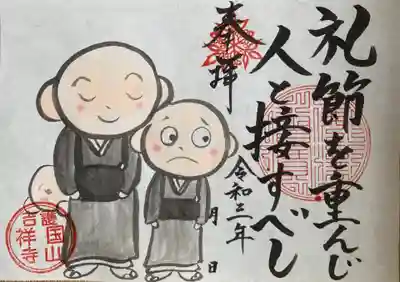 礼節を重んじ
人と接すべし
奉拝
令和三年
月 日
護国山
吉祥寺